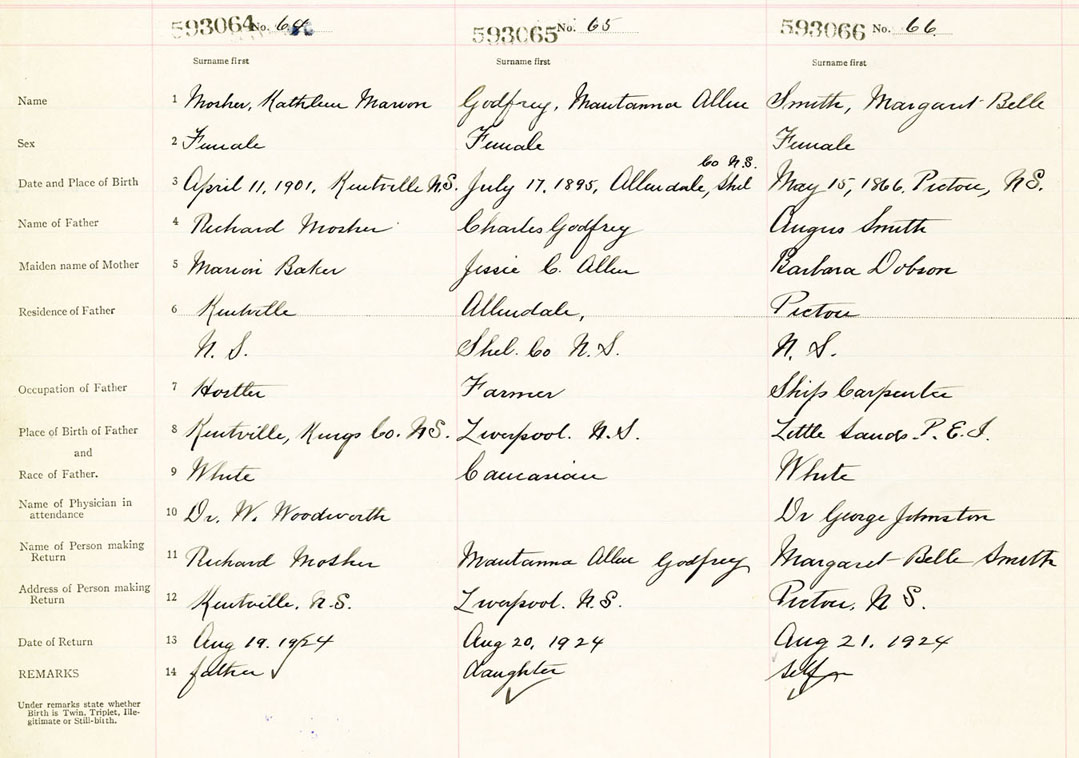 593064 No. 64 593065 No. 65 593066 No. 66
Surname first Surname first Surname first
Name 1 Mosher, Kathleen Marion Godfrey, Mautanna Allen Smith, Margaret Belle
Sex 2 Female Female Female
Co N.S.
Date and Place of Birth 3 April 11, 1901, Kentville N.S. July 17, 1895, Allendale, Shel May 15, 1866, Pictou, N.S.
Name of Father 4 Richard Mosher Charles Godfrey Angus Smith
Maiden name of Mother 5 Marion Baker Jessie C. Allen Barbara Dobson
Residence of Father 6 Kentville Allendale, Pictou
N. S. Shel. Co N.S. N. S.
Occupation of Father 7 Hostler Farmer Ship Carpenter
Place of Birth of Father 8 Kentville, Kings Co. N.S. Liverpool. N.S. Little Sands. P.E.I.
and
Race of Father. 9 White Caucasian White
Name of Physician in
attendance 10 Dr. W. Woodworth Dr George Johnston
Name of Person making
Return 11 Richard Mosher Mautanna Allen Godfrey Margaret Belle Smith
Address of Person making
Return 12 Kentville. N.S. Liverpool. N.S. Pictou, N S.
Date of Return 13 Aug 19. 1924 Aug 20, 1924 Aug 21. 1924
REMARKS 14 father daughter self
Under remarks state whether
Birth is Twin, Triplet, Ille-
gitimate or Still-birth.